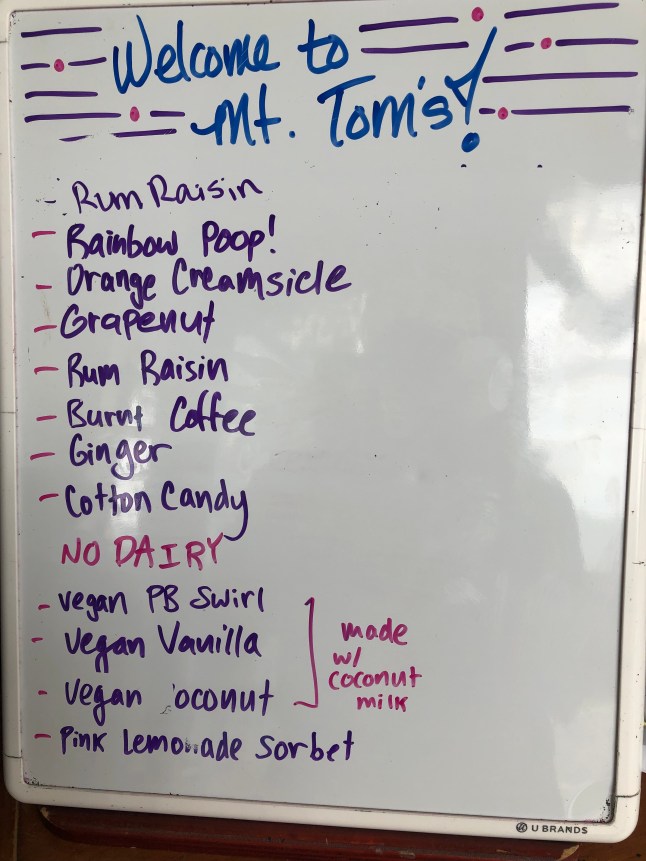 Welcome to
Mt. Tom's!
- Rum Raisin
- Rainbow Poop!
- Orange Creamsicle
- Grapenut
- Rum Raisin
- Burnt Coffee
- Ginger
- Cotton Candy
NO DAIRY
- vegan PB Swirl
- Vegan Vanilla
- Vegan oconut
made
w/
coconut
milk
- Pink Lemonade Sorbet
U BRANDS